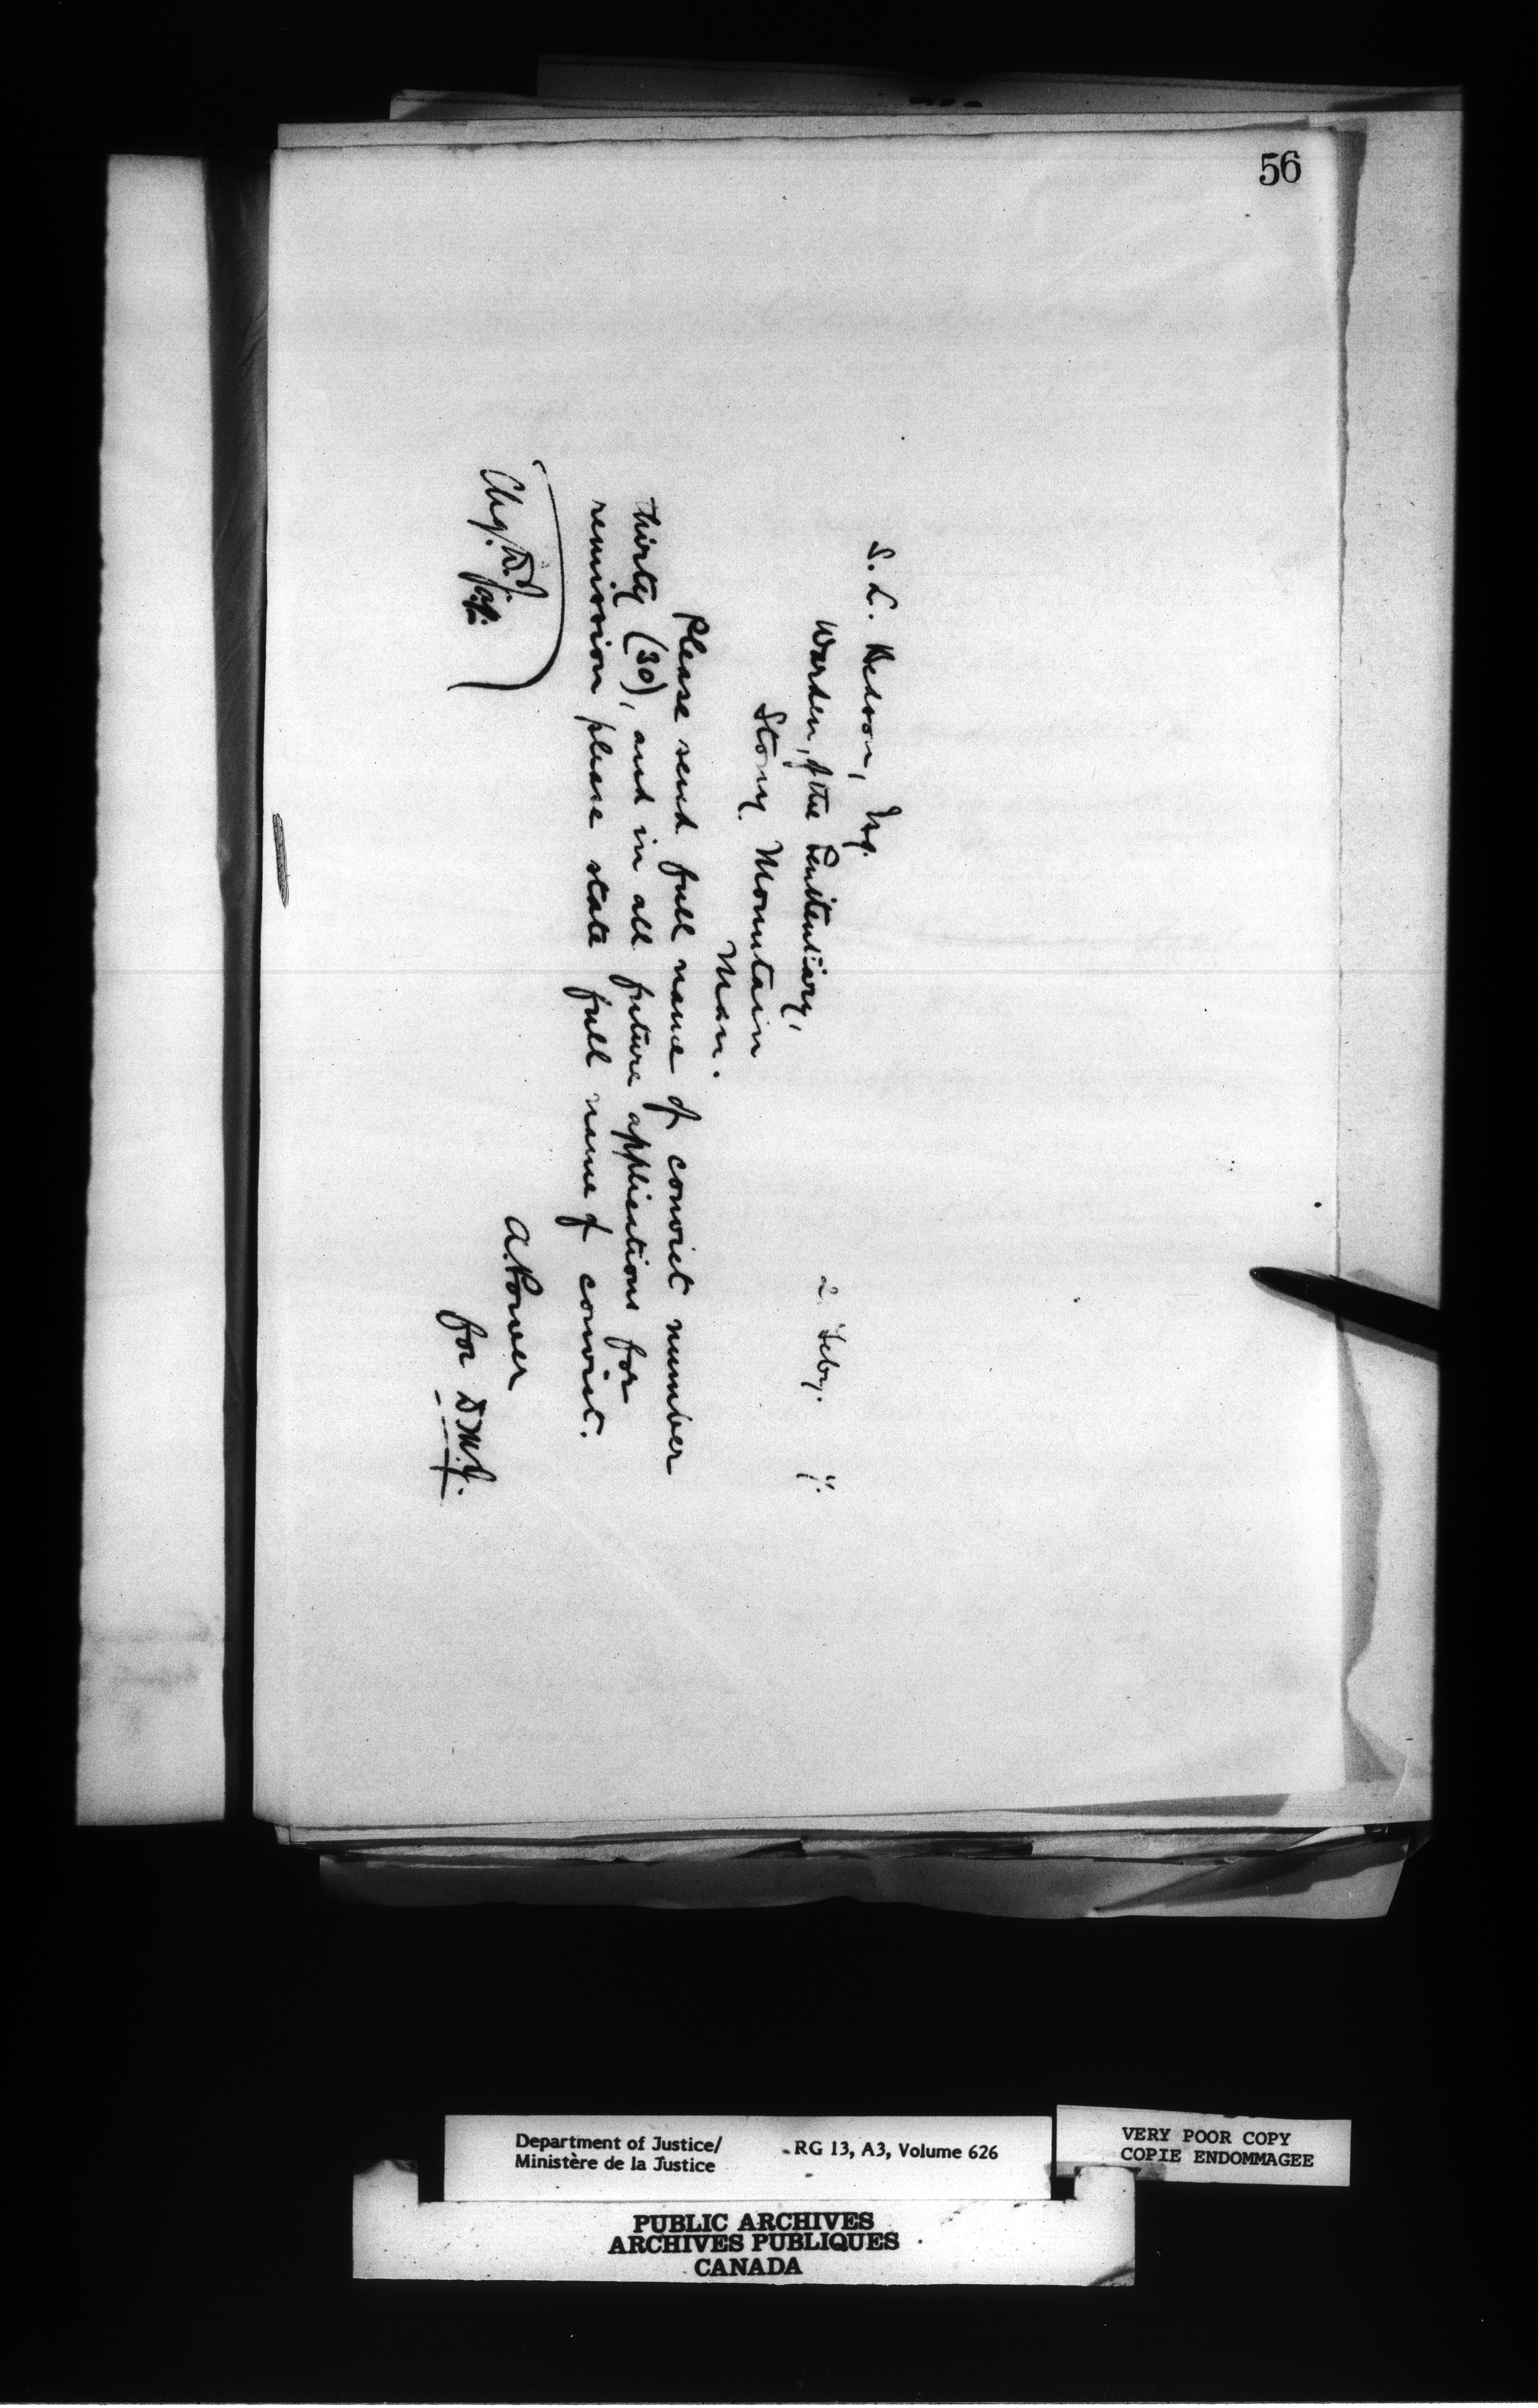 56
2. Feby. 7.
S. L. Bedson, Esq.
Warden, of the Penitentiary,
Stony Mountain
Man.
Please send full name of convict number
thirty (30), and in all future applications for
remission please state full name of convict.
A. Power
for D.M.J.
Chg. D.J.
Department of Justice/
Ministère de la Justice
RG 13, A3, Volume 626
VERY POOR COPY
COPIE ENDOMMAGEE
PUBLIC ARCHIVES
ARCHIVES PUBLIQUES
CANADA